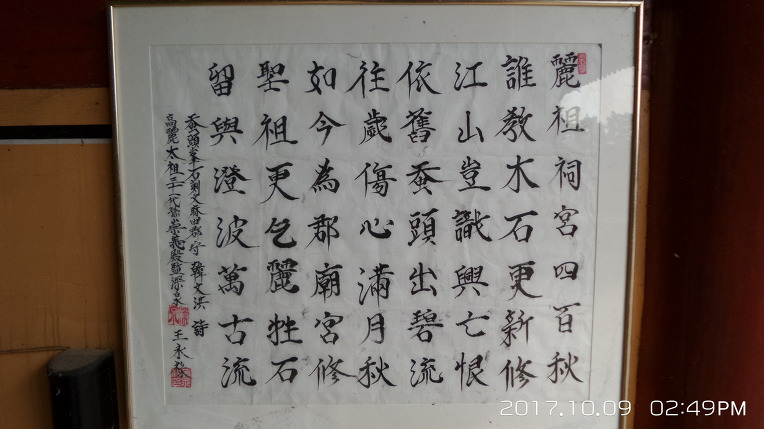 麗祖祠宮四百秋
誰敎木石更新修
江山豈識興亡恨
依舊蚕頭出碧流
往歲傷心滿月秋
如今為郡廟宮修
聖祖更乞麗牲石
留與澄波萬古流
蚕頭峯石刻文麻田郡守 韓文洪 詩
高麗太祖三十一代孫崇義殿監 王永
2017.10.09 02:49PM